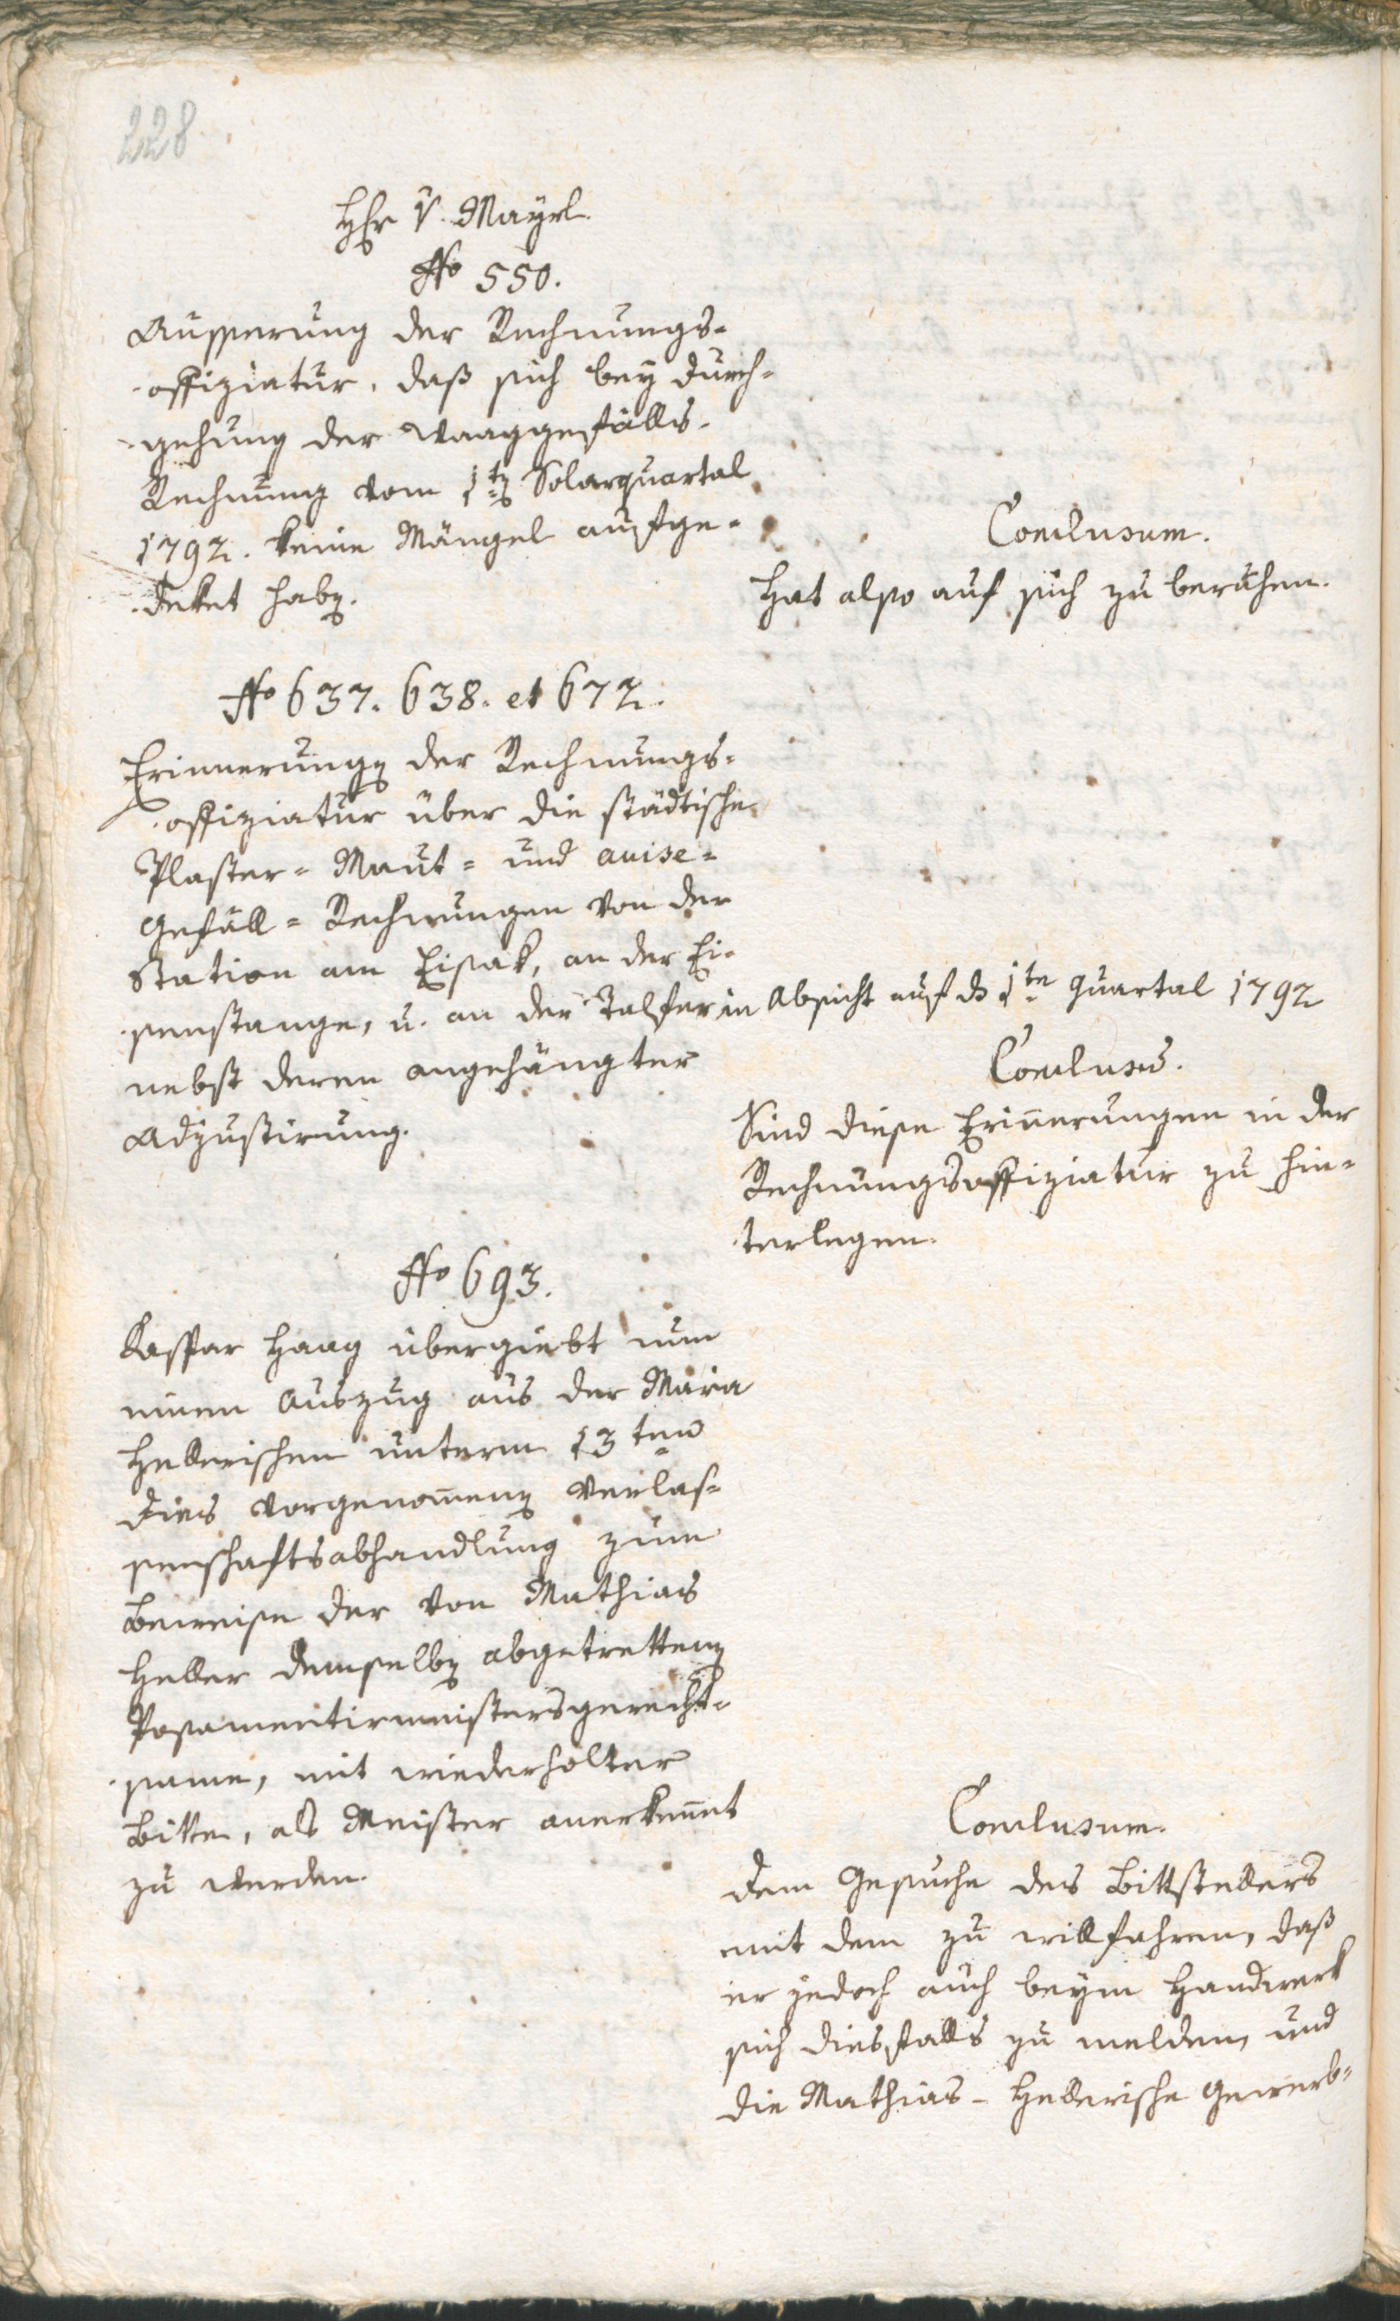 228
Hr v. Mayrl
No 550.
Äusserung der Rechnungs-
offiziatur, daß sich bey Durch-
gehung der Waaggefälls-
Rechnung vom 1ten Solarquartal
1792. keine Mängel aufge-
deket haben.
Conclusum.
Hat also auf sich zu beruhen.
No 637. 638. et 672.
Erinnerungen der Rechnungs-
offiziatur über die städtische
Plaster- Maut- und accise-
Gefäll-Rechnungen von der
Station am Eisak, an der Ei-
senstange, u. an der Talfer in Absicht auf ds 1te Quartal 1792
nebst deren angehängter
Adjustirung.
Conclusum.
Sind diese Erinnerungen in der
Rechnungsoffiziatur zu hin-
terlegen.
No 693.
Kaspar Haag übergiebt nun
einen Auszug aus der Maria
Hellerischen unterm 13ten
dies vorgenommenen Verlas-
senschaftsabhandlung zum
Beweise der von Mathias
Heller demselben abgetrettenen
Posamentirmeistersgerecht-
same, mit wiederholter
Bitte, als Meister anerkennt
zu werden.
Conclusum.
Dem Gesuche des Bittstellers
mit dem zu willfahren, daß
er jedoch auch beym Handwerk
sich diesfalls zu melden, und
die Mathias-Hellerische Gewerb-